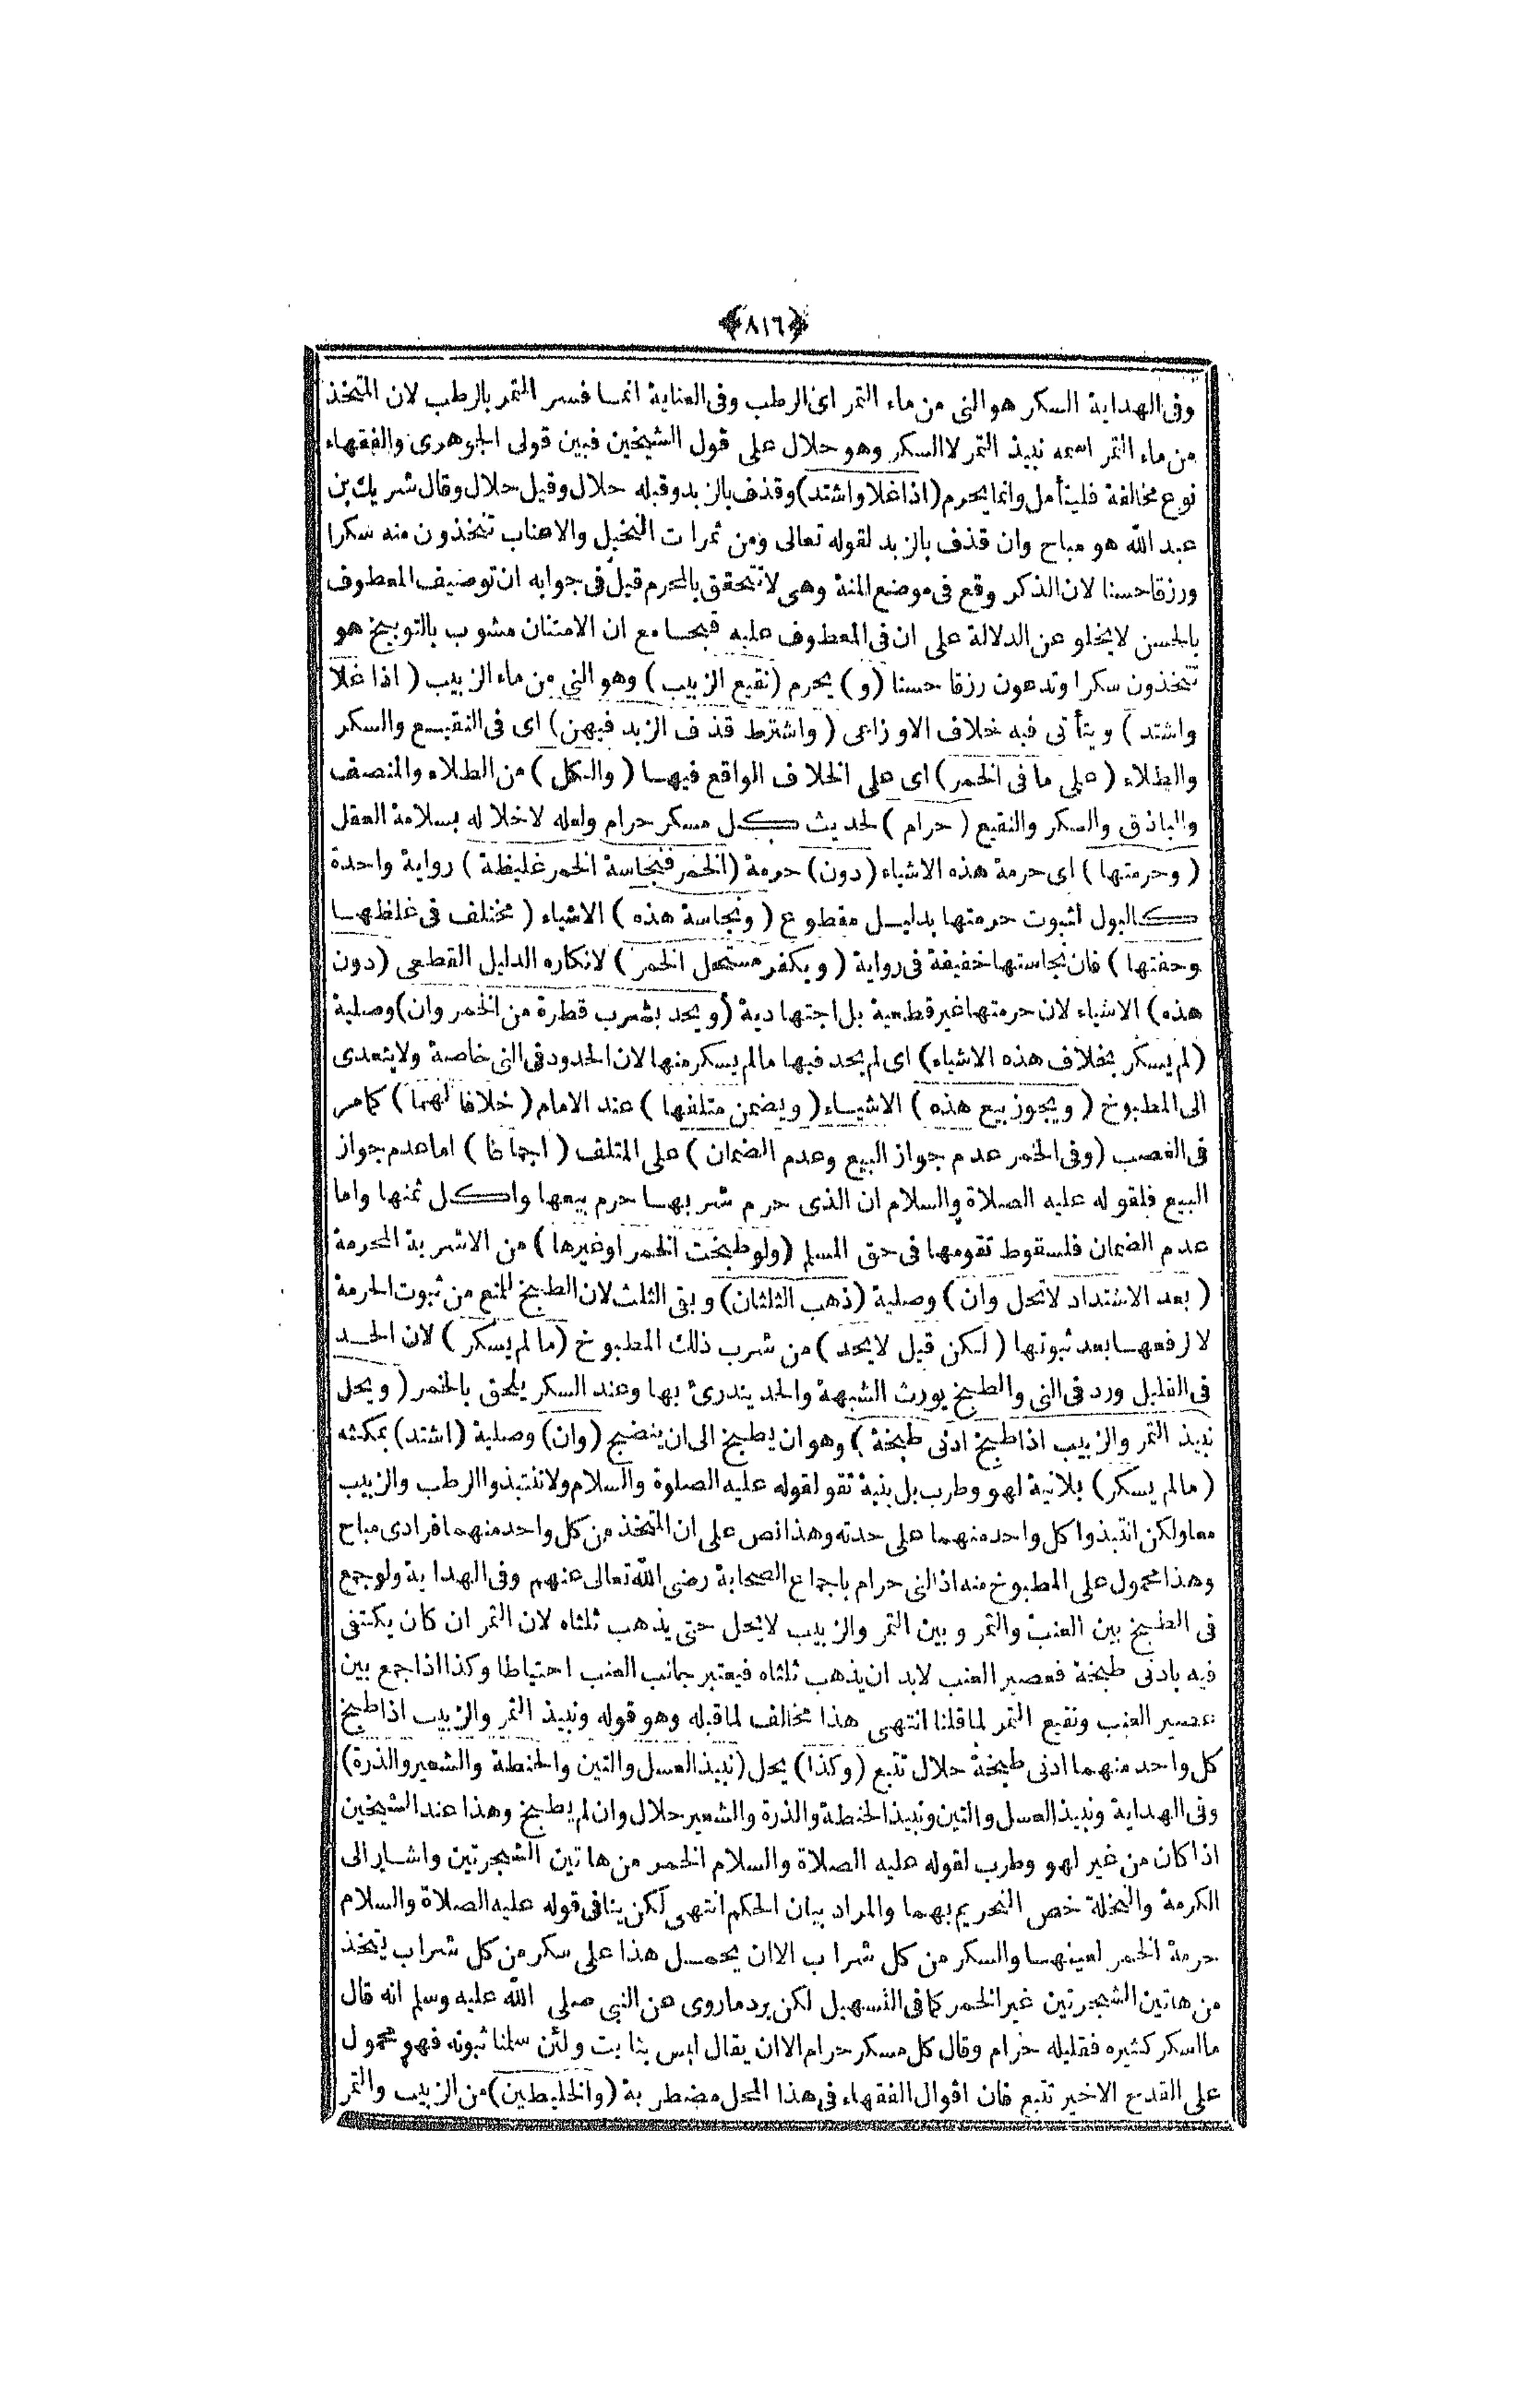 ﴿٨١٦﴾
وفى الهداية السكر هو النى من ماء التمر اى الرطب وفى العناية انما فسر التمر بالرطب لان المتخذ
من ماء التمر اسمه نبيذ التمر لا السكر وهو حلال على قول الشيخين فبين قولى الجوهرى والفقهاء
نوع مخالفة فليتأمل وانما يحرم (اذا غلا واشتد) وقذف بالزبد وقبله حلال وقيل حلال وقال شريك بن
عبد الله هو مباح وان قذف بالزبد لقوله تعالى ومن ثمرات النخيل والاعناب تتخذون منه سكرا
ورزقا حسنا لان الذكر وقع فى موضع المنة وهى لا تتحقق بالمحرم قيل فى جوابه ان توصيف المعطوف
بالحسن لا يخلو عن الدلالة على ان فى المعطوف عليه قبحا مع ان الامتنان مشوب بالتوبيخ هو
تتخذون سكرا وتدعون رزقا حسنا (و) يحرم (نقيع الزبيب) وهو النى من ماء الزبيب (اذا غلا
واشتد) ويتأتى فيه خلاف الاوزاعى (واشترط قذف الزبد فيهن) اى فى النقيع والسكر
والطلاء (على ما فى الخمر) اى على الخلاف الواقع فيها (والكل) من الطلاء والمنصف
والباذق والسكر والنقيع (حرام) لحديث كل مسكر حرام ولعله لاخلاله بسلامة العقل
(وحرمتها) اى حرمة هذه الاشياء (دون) حرمة (الخمر فنجاسة الخمر غليظة) رواية واحدة
كالبول لثبوت حرمتها بدليل مقطوع (ونجاسة هذه) الاشياء (مختلف فى غلظها
وخفتها) فان نجاستها خفيفة فى رواية (ويكفر مستحل الخمر) لانكاره الدليل القطعى (دون
هذه) الاشياء لان حرمتها غير قطعية بل اجتهادية (ويحد بشرب قطرة من الخمر وان) وصلية
(لم يسكر بخلاف هذه الاشياء) اى لم يحد فيها مالم يسكر منها لان الحدود فى النى خاصة ولا يتعدى
الى المطبوخ (ويجوز بيع هذه) الاشياء (ويضمن متلفها) عند الامام (خلافا لهما) كما مر
فى الغصب (وفى الخمر عدم جواز البيع وعدم الضمان) على المتلف (اجماعا) اما عدم جواز
البيع فلقوله عليه الصلاة والسلام ان الذى حرم شربها حرم بيعها واكل ثمنها واما
عدم الضمان فلسقوط تقومها فى حق المسلم (ولو طبخت الخمر اوغيرها) من الاشربة المحرمة
(بعد الاشتداد لاتحل وان) وصلية (ذهب الثلثان) وبقى الثلث لان الطبخ للمنع من ثبوت الحرمة
لا لرفعها بعد ثبوتها (لكن قيل لايحد) من شرب ذلك المطبوخ (مالم يسكر) لان الحد
فى القليل ورد فى النى والطبخ يورث الشبهة والحد يندرئ بها وعند السكر يلحق بالخمر (ويحل
نبيذ التمر والزبيب اذا طبخ ادنى طبخة) وهو ان يطبخ الى ان ينضج (وان) وصلية (اشتد) بمكثه
(مالم يسكر) بلانية لهو وطرب بل بنية تقو لقوله عليه الصلوة والسلام ولا تنتبذوا الرطب والزبيب
معا ولكن انتبذوا كل واحد منهما على حدته وهذا نص على ان المتخذ من كل واحد منهما فرادى مباح
وهذا محمول على المطبوخ منه اذ النى حرام باجماع الصحابة رضى الله تعالى عنهم وفى الهداية ولو جمع
فى الطبخ بين العنب والتمر وبين التمر والزبيب لايحل حتى يذهب ثلثاه لان التمر ان كان يكتفى
فيه بادنى طبخة فعصير العنب لابد ان يذهب ثلثاه فيعتبر جانب العنب احتياطا وكذا اذا جمع بين
عصير العنب ونقيع التمر لما قلنا انتهى هذا مخالف لماقبله وهو قوله ونبيذ التمر والزبيب اذا طبخ
كل واحد منهما ادنى طبخة حلال تتبع (وكذا) يحل (نبيذ العسل والتين والحنطة والشعير والذرة)
وفى الهداية ونبيذ العسل والتين ونبيذ الحنطة والذرة والشعير حلال وان لم يطبخ وهذا عند الشيخين
اذا كان من غير لهو وطرب لقوله عليه الصلاة والسلام الخمر من هاتين الشجرتين واشار الى
الكرمة والنخلة خص التحريم بهما والمراد بيان الحكم انتهى لكن ينافى قوله عليه الصلاة والسلام
حرمة الخمر لعينها والسكر من كل شراب الا ان يحمل هذا على سكر من كل شراب يتخذ
من هاتين الشجرتين غير الخمر كما فى التسهيل لكن يرد ماروى عن النبى صلى الله عليه وسلم انه قال
ما اسكر كثيره فقليله حرام وقال كل مسكر حرام الا ان يقال ليس بثابت ولئن سلمنا ثبوته فهو محمول
على القدح الاخير تتبع فان اقوال الفقهاء فى هذا المحل مضطربة (والخليطين) من الزبيب والتمر